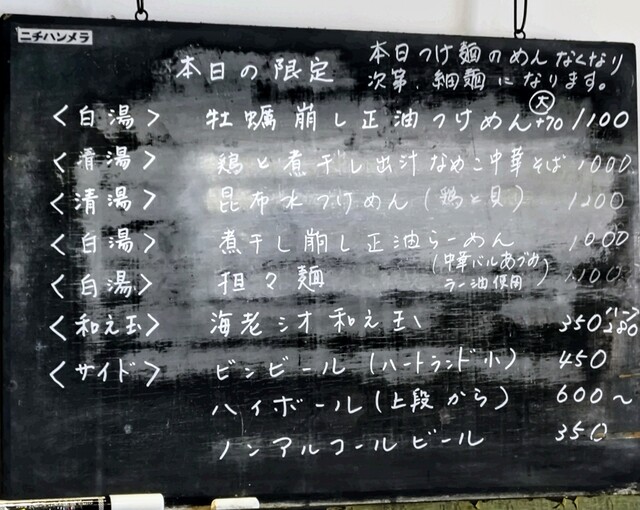 ニチハンメラ
本日の限定
本日つけ麺のめんなくなり
次第、細麺になります。
<白湯> 牡蠣崩し正油つけめん 大+70 1100
<清湯> 鶏と煮干し出汁なめこ中華そば 1000
<清湯> 昆布水つけめん (鶏と貝) 1200
<白湯> 煮干し崩し正油らーめん 1000
<白湯> 担々麺 (中華バルあづま ラー油使用) 1100
<和え玉> 海老シオ和え玉 350 ハーフ280
<サイド> ビンビール (ハートランド小) 450
ハイボール (上段から) 600〜
ノンアルコールビール 350